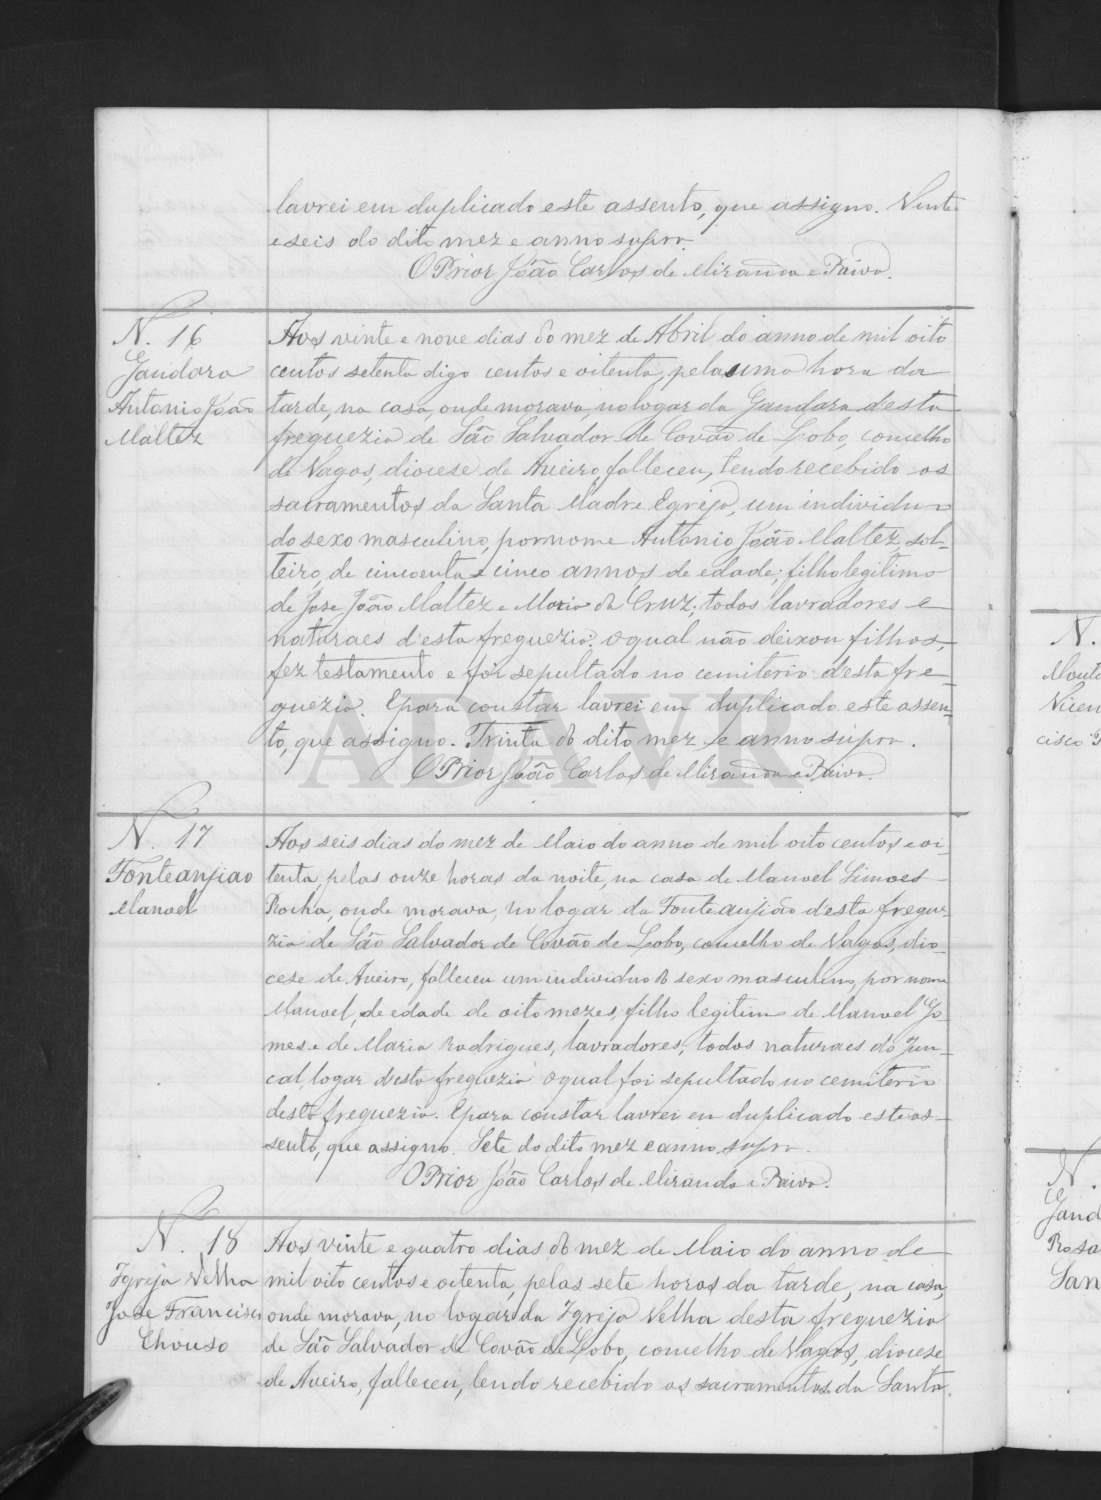 lavrei em duplicado este assento, que assigno. Vinte
e seis do dito mez e anno supra.
O Prior João Carlos de Miranda e Paiva.
N. 16
Gandara
Antonio João
Maltez
Aos vinte e nove dias do mez de Abril do anno de mil oito
centos setenta digo centos e oitenta, pelas uma hora da
tarde, na casa, onde morava, no logar da Gandara d'esta
freguezia de São Salvador de Covão de Lobo, concelho
de Vagos, diocese de Aveiro, falleceu, tendo recebido os
sacramentos da Santa Madre Egreja, um individuo
do sexo masculino, por nome Antonio João Maltez, sol-
teiro, de cincoenta e cinco annos de edade; filho legitimo
de Jose João Maltez e Maria da Cruz; todos lavradores e
naturaes d'esta freguezia: o qual não deixou filhos,
fez testamento e foi sepultado no cemiterio d'esta fre-
guezia. E para constar lavrei em duplicado este assen-
to, que assigno. Trinta do dito mez e anno supra.
O Prior João Carlos de Miranda e Paiva.
ADAVR
N. 17
Fonteanjiao
Manoel
Aos seis dias do mez de Maio do anno de mil oito centos e oi-
tenta, pelas onze horas da noite, na casa de Manoel Simoes
Rocha, onde morava, no logar da Fonteanjião desta fregue-
zia de São Salvador de Covão de Lobo, concelho de Vagos, dio-
cese de Aveiro, falleceu um individuo do sexo masculino, por nome
Manoel, de edade de oito mezes, filho legitimo de Manoel Go-
mes e de Maria Rodrigues, lavradores, todos naturaes do Jun-
cal, logar desta freguezia o qual foi sepultado no cemiterio
desta freguezia. E para constar lavrei em duplicado este as-
sento, que assigno. Sete do dito mez e anno supra.
O Prior João Carlos de Miranda e Paiva.
N. 18
Igreja Velha
Jose Francisco
Chouso
Aos vinte e quatro dias do mez de Maio do anno de
mil oito centos e oitenta, pelas sete horas da tarde, na casa,
onde morava, no logar da Igreja Velha desta freguezia
de São Salvador de Covão de Lobo, concelho de Vagos, diocese
de Aveiro, falleceu, tendo recebido os sacramentos da Santa
N.
cisco
N.
Gand
Rosa
San